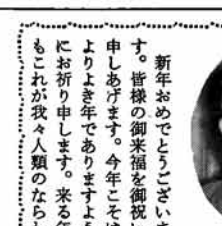 新年おめでとうございま
す。皆様の御来福を御祝い
申しあげます。今年こそは
よりよき年でありますよう
にお祈り申します。来る年
もこれが我々人類のならし